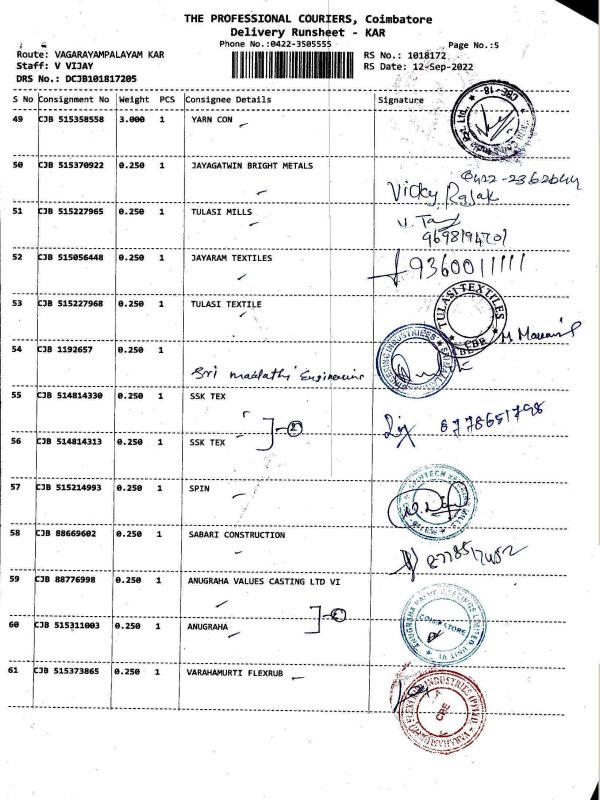 THE PROFESSIONAL COURIERS, Coimbatore
Delivery Runsheet - KAR
Phone No.:0422-3505555 Page No.:5
Route: VAGARAYAMPALAYAM KAR RS No.: 1018172
Staff: V VIJAY RS Date: 12-Sep-2022
DRS No.: DCJB101817205
S No Consignment No Weight PCS Consignee Details Signature
49 CJB 515358558 3.000 1 YARN CON
50 CJB 515370922 0.250 1 JAYAGATWIN BRIGHT METALS
Vicky Rajak
51 CJB 515227965 0.250 1 TULASI MILLS
52 CJB 515056448 0.250 1 JAYARAM TEXTILES
9360011111
53 CJB 515227968 0.250 1 TULASI TEXTILE
TULASI TEXTILES
CBE
54 CJB 1192657 0.250 1
55 CJB 514814330 0.250 1 SSK TEX
2
8778651798
56 CJB 514814313 0.250 1 SSK TEX
57 CJB 515214993 0.250 1 SPIN
58 CJB 88669602 0.250 1 SABARI CONSTRUCTION
59 CJB 88776998 0.250 1 ANUGRAHA VALUES CASTING LTD VI
ANUGRAHA VALVE CASTINGS LIMITED UNIT VI
COIMBATORE
60 CJB 515311003 0.250 1 ANUGRAHA
61 CJB 515373865 0.250 1 VARAHAMURTI FLEXRUB
CBE